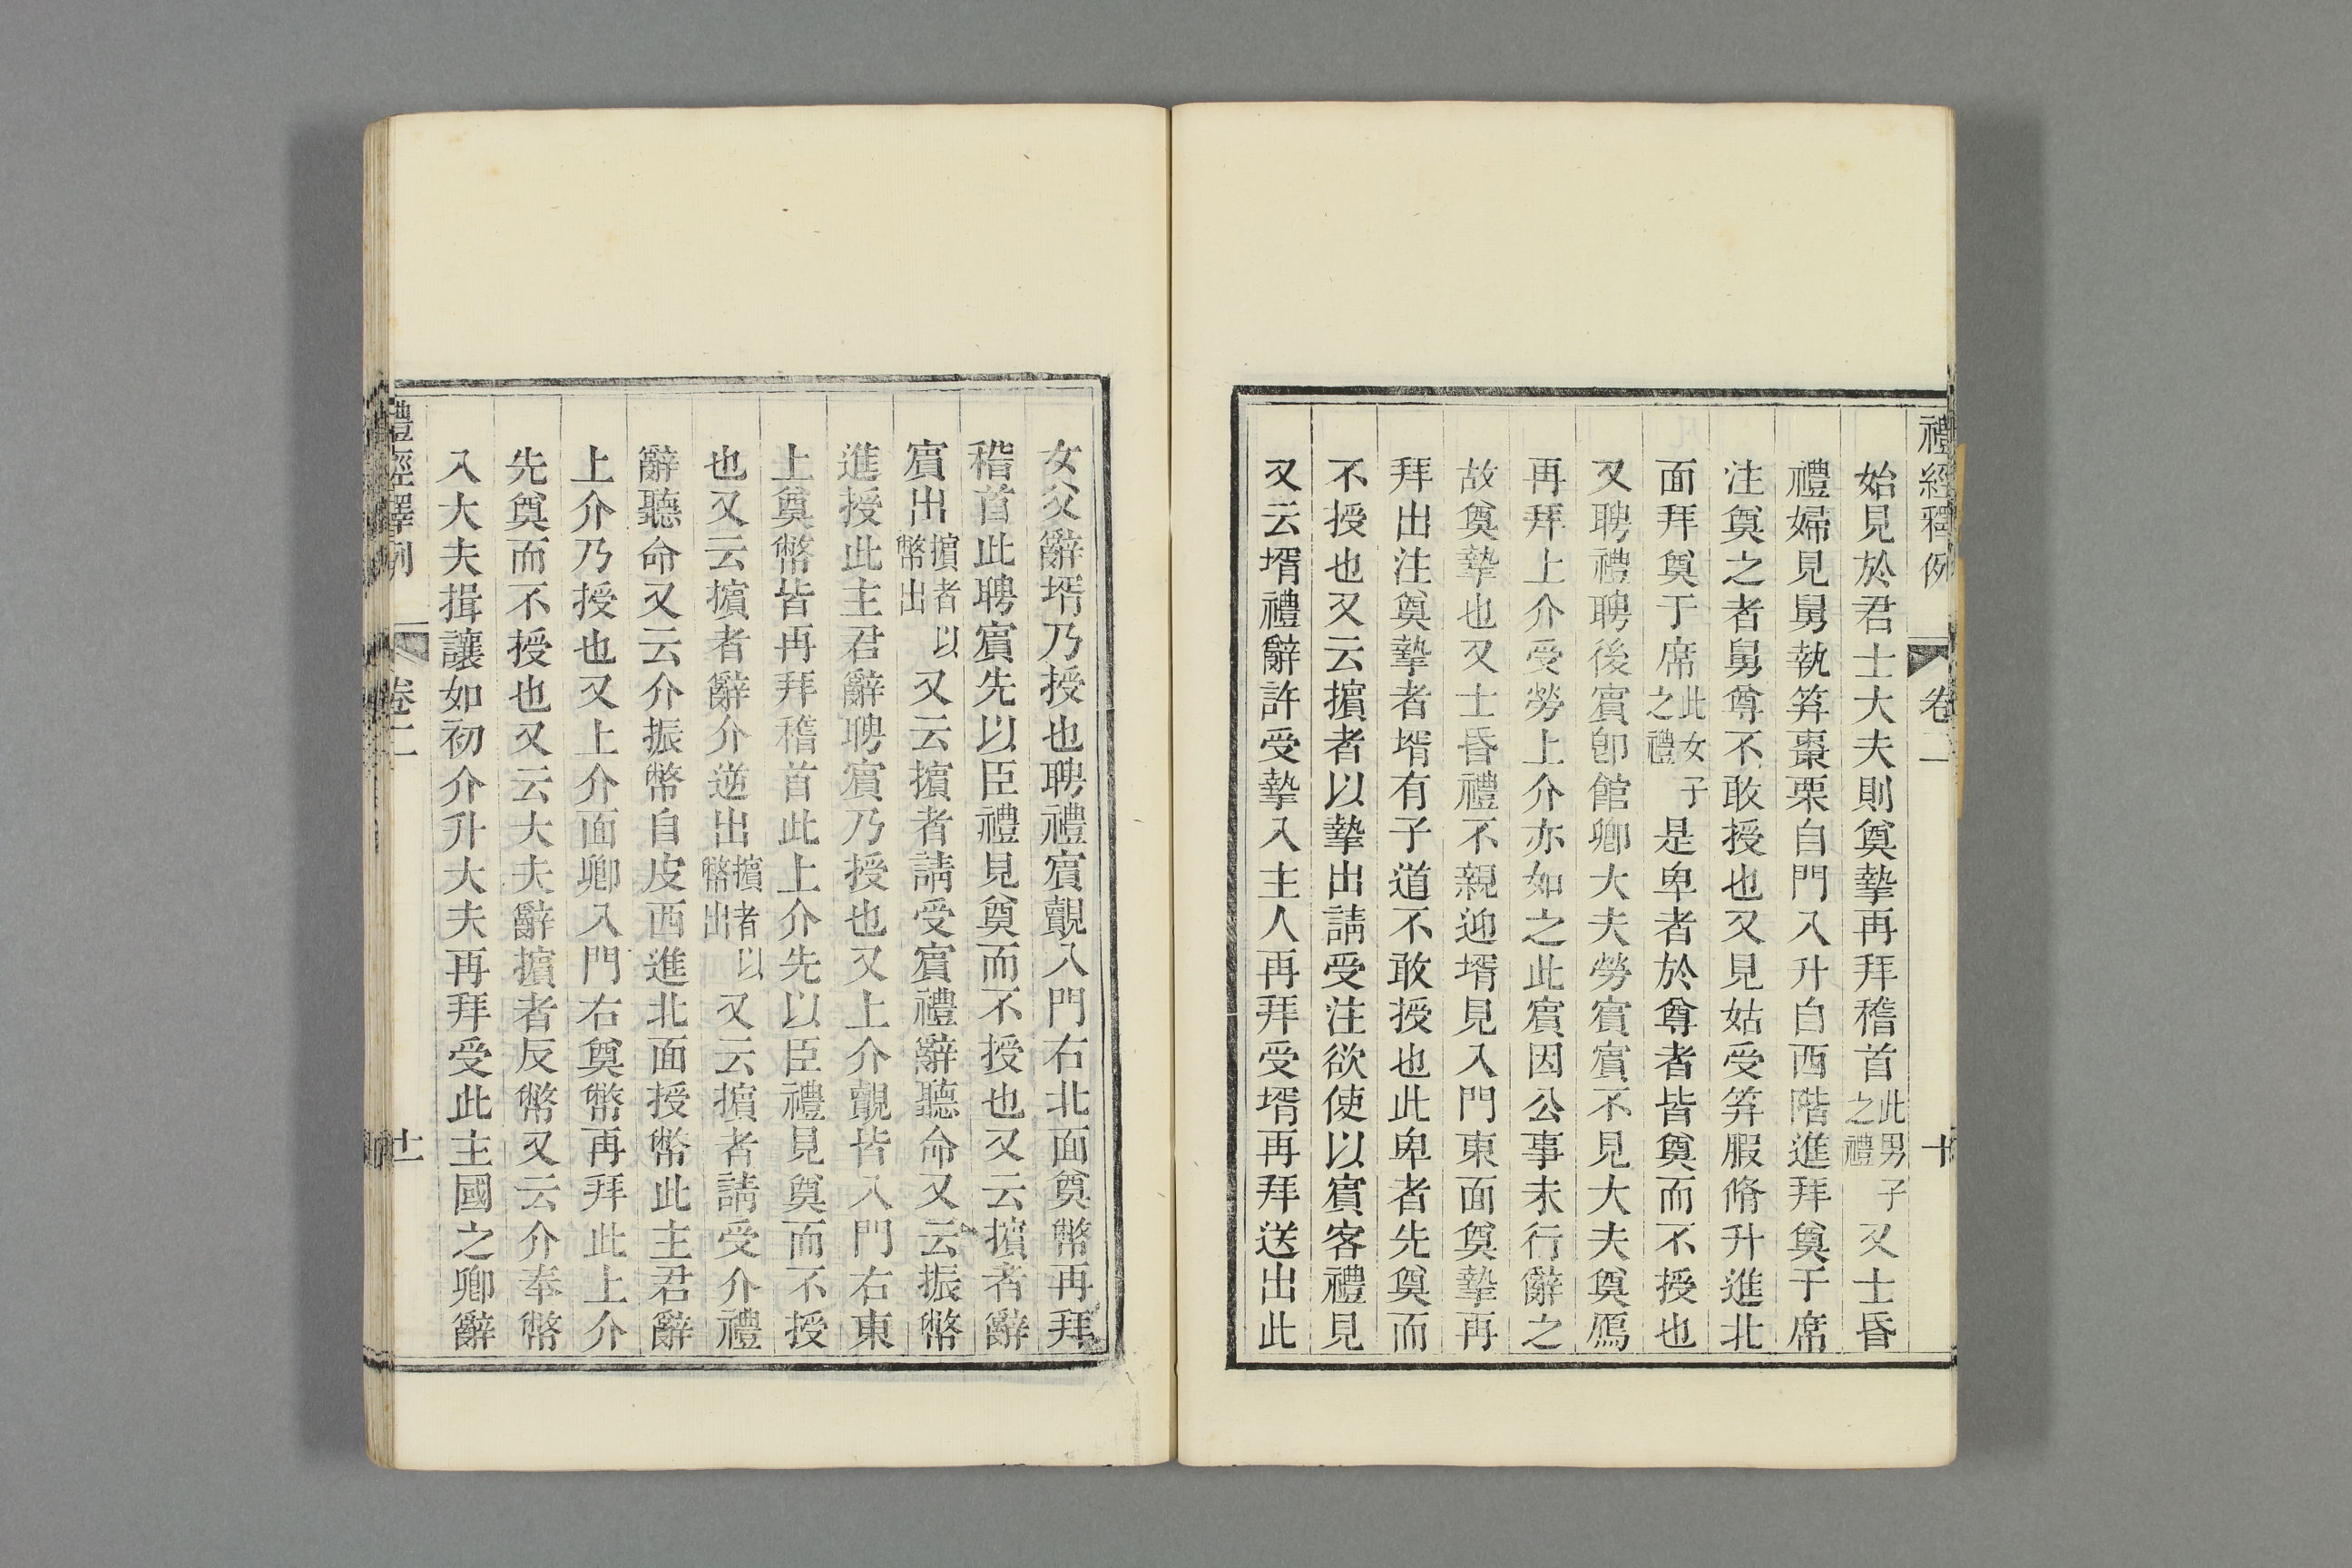 禮經釋例 卷二 十
始見於君士大夫則奠摯再拜稽首此男子之禮又士昏
禮婦見舅執笲棗栗自門入升自西階進拜奠于席
注奠之者舅尊不敢授也又見姑受笲腶脩升進北
面拜奠于席此女子之禮是卑者於尊者皆奠而不授也
又聘禮聘後賓卽館卿大夫勞賓賓不見大夫奠鴈
再拜上介受勞上介亦如之此賓因公事未行辭之
故奠摯也又士昏禮不親迎壻見入門東面奠摯再
拜出注奠摯者壻有子道不敢授也此卑者先奠而
不授也又云擯者以摯出請受注欲使以賓客禮見
又云壻禮辭許受摯入主人再拜受壻再拜送出此
女父辭壻乃授也聘禮賓覿入門右北面奠幣再拜
稽首此聘賓先以臣禮見奠而不授也又云擯者辭
賓出擯者以幣出又云擯者請受賓禮辭聽命又云振幣
進授此主君辭聘賓乃授也又上介覿皆入門右東
上奠幣皆再拜稽首此上介先以臣禮見奠而不授
也又云擯者辭介逆出擯者以幣出又云擯者請受介禮
辭聽命又云介振幣自皮西進北面授幣此主君辭
上介乃授也又上介面卿入門右奠幣再拜此上介
先奠而不授也又云大夫辭擯者反幣又云介奉幣
入大夫揖讓如初介升大夫再拜受此主國之卿辭
禮經釋例 卷二 十一